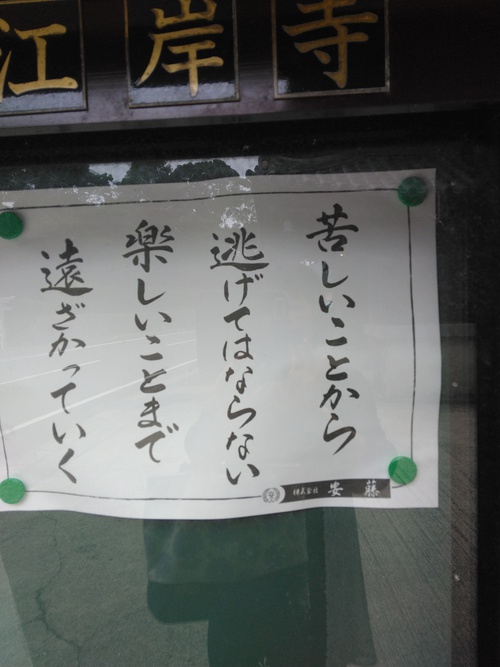 江岸寺
苦しいことから
逃げてはならない
楽しいことまで
遠ざかっていく
株式会社 安藤